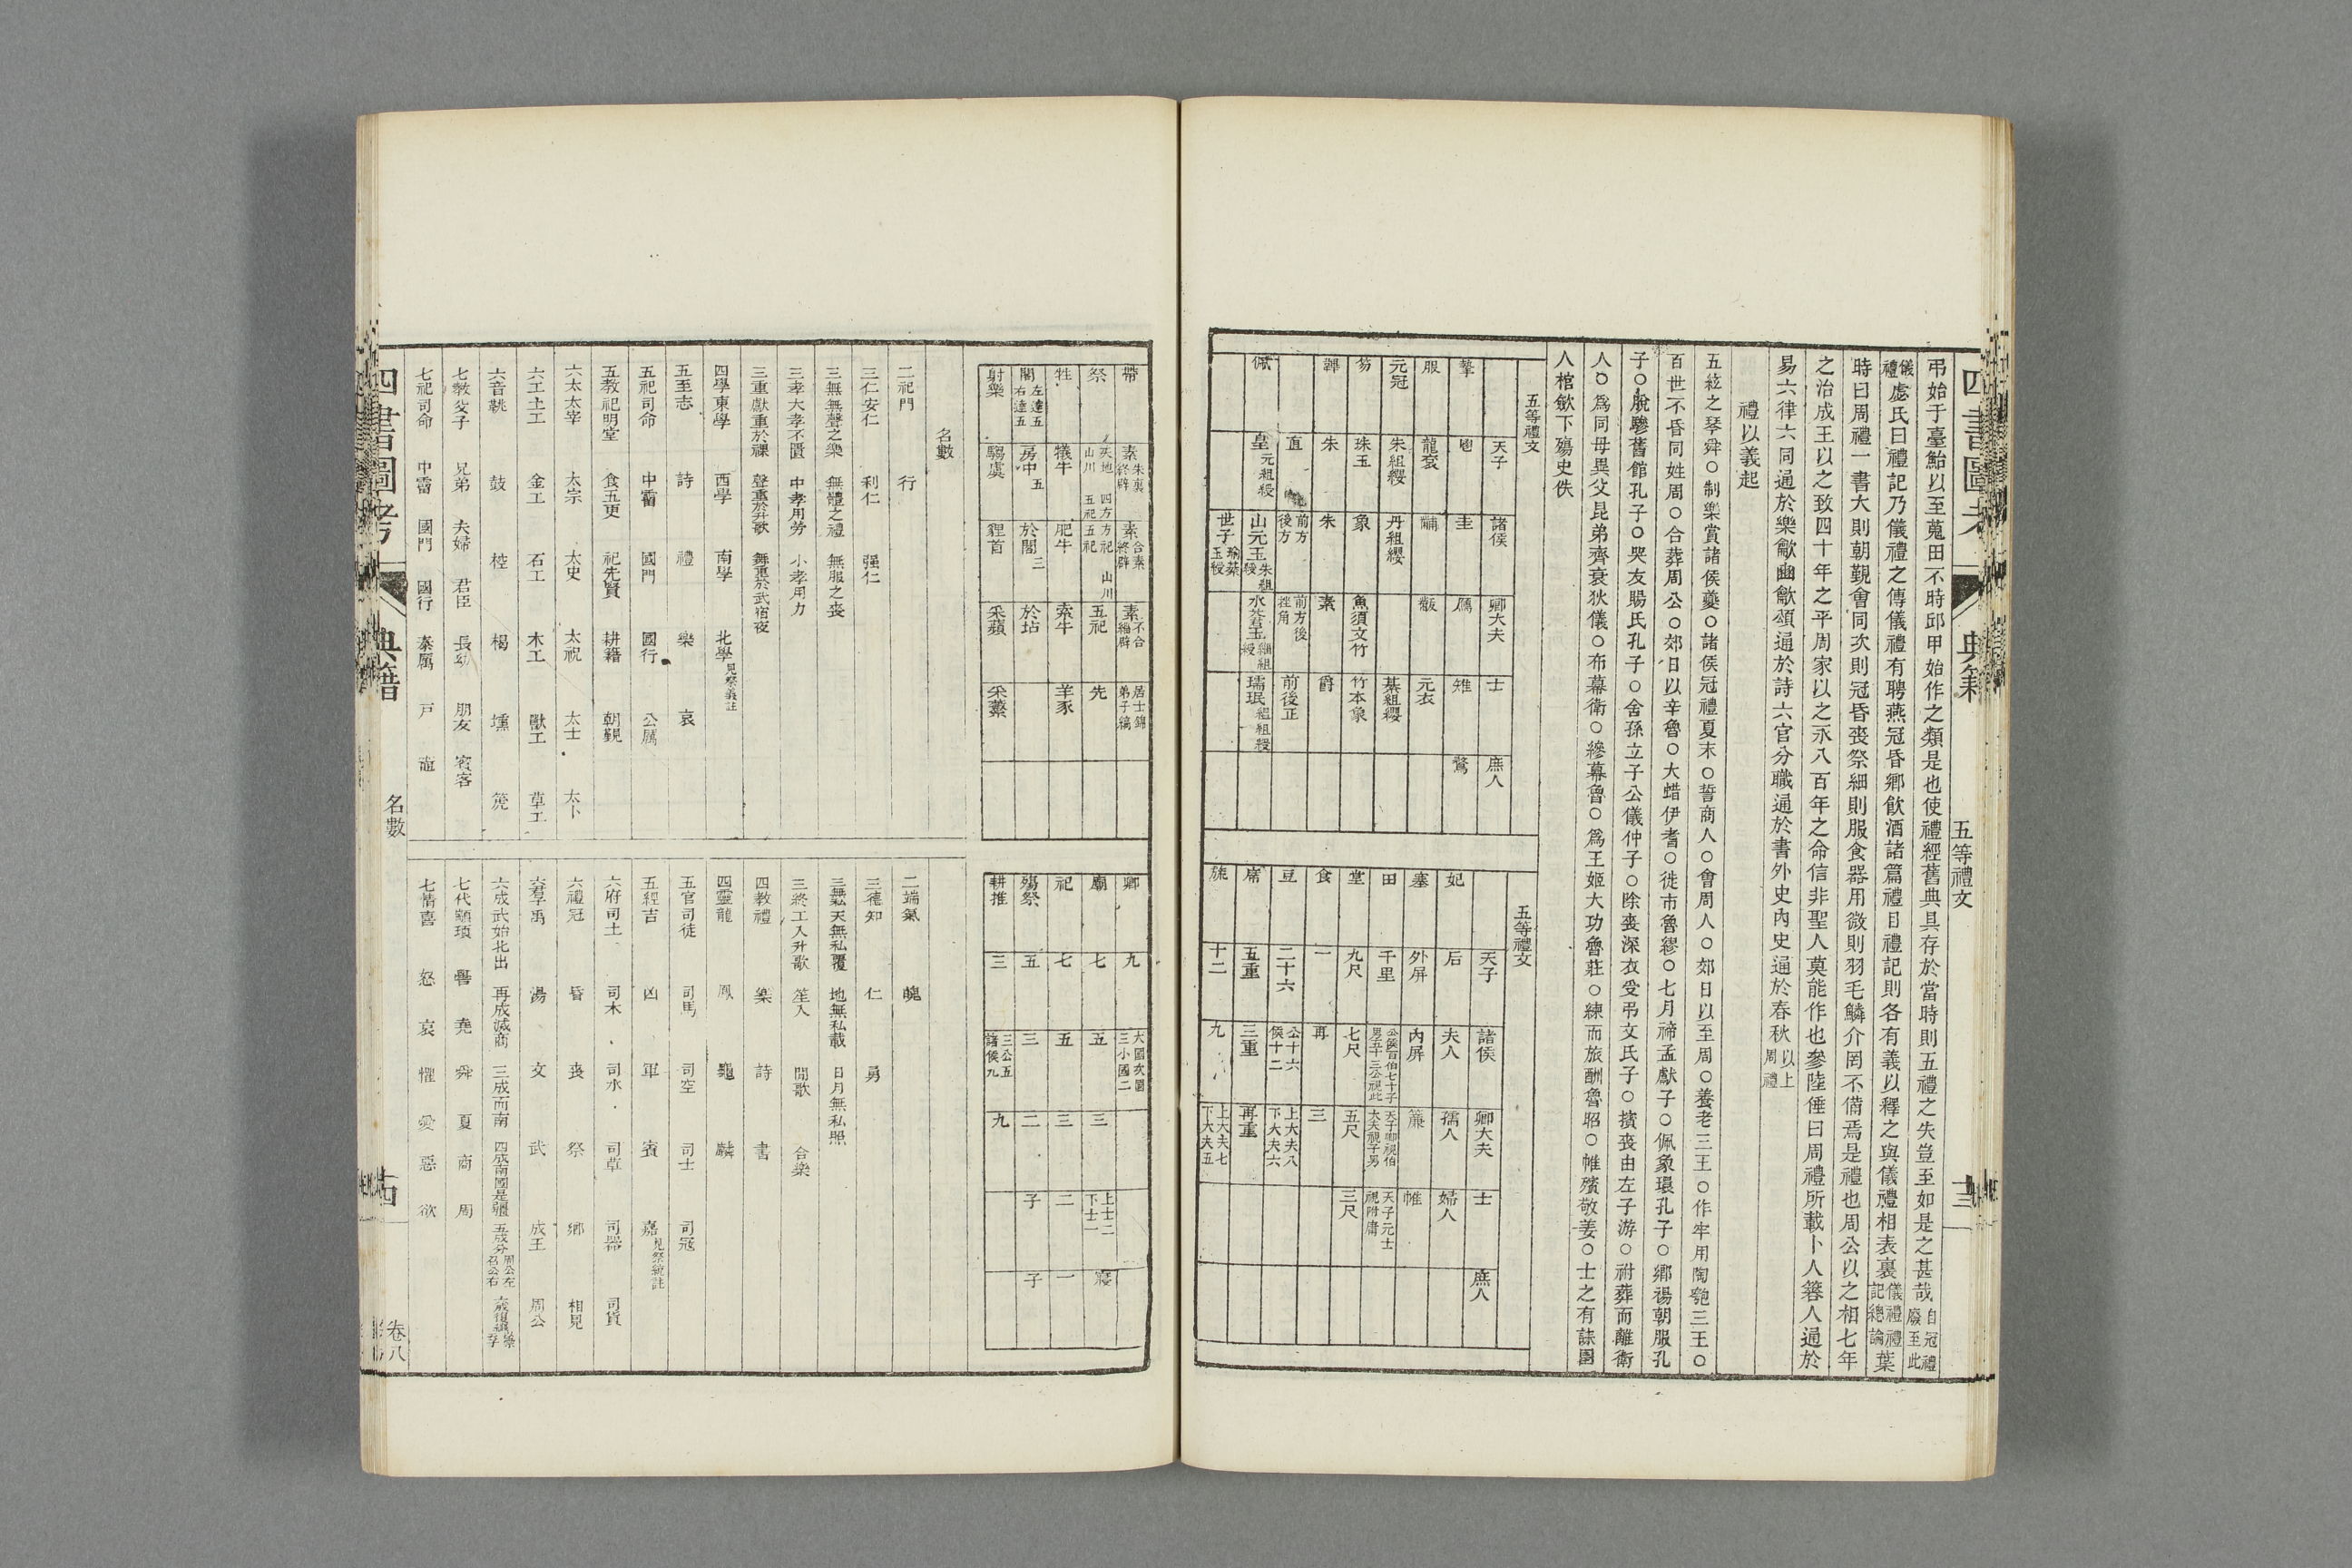 弔始于臺鮐以至蒐田不時邱甲始作之類是也使禮經舊典具存於當時則五禮之失豈至如是之甚哉自冠禮廢至此
儀禮虙氏曰禮記乃儀禮之傳儀禮有聘燕冠昏鄉飲酒諸篇禮日禮記則各有義以釋之與儀禮相表裏儀禮禮記總論葉
時曰周禮一書大則朝覲會同次則冠昏喪祭細則服食器用微則羽毛鱗介罔不備焉是禮也周公以之相七年
之治成王以之致四十年之平周家以之永八百年之命信非聖人莫能作也參陸倕曰周禮所載卜人簭人通於
易六律六同通於樂龡豳龡頌通於詩六官分職通於書外史內史通於春秋以上周禮
禮以義起
五絃之琴舜○制樂賞諸侯夔○諸侯冠禮夏末○誓商人○會周人○郊日以至周○養老三王○作牢用陶匏三王○
百世不昏同姓周○合葬周公○郊日以辛魯○大蜡伊耆○徙市魯繆○七月禘孟獻子○佩象環孔子○鄉裼朝服孔
子○脫驂舊館孔子○哭友賜氏孔子○舍孫立子公儀仲子○除喪深衣受弔文氏子○擯喪由左子游○祔葬而離衛
人○為同母異父昆弟齊衰狄儀○布幕衛○縿幕魯○為王姬大功魯莊○練而旅酬魯昭○帷殯敬姜○士之有誄圉
人棺斂下殤史佚
五等禮文
天子 諸侯 卿大夫 士 庶人
摯 鬯 圭 鴈 雉 鶩
服 龍袞 黼 黻 元衣
元冠 朱組纓 丹組纓 綦組纓
笏 珠玉 象 魚須文竹 竹本象
韠 朱 朱 素 爵
直 前方後方 前方後挫角 前後正
佩 皇元組綬 山元玉朱組綬 水蒼玉緇組綬 瓀珉縕組綬
世子瑜綦玉綬
五等禮文
天子 諸侯 卿大夫 士 庶人
妃 后 夫人 孺人 婦人
塞 外屏 內屏 簾 帷
田 千里 公侯百伯七十子男五十三公視此 天子卿視伯大夫視子男 天子元士視附庸
堂 九尺 七尺 五尺 三尺
食 一 再 三
豆 二十六 公十六侯十二 上大夫八下大夫六
席 五重 三重 再重
旒 十二 九 上大夫七下大夫五
四書圖考 典籍 五等禮文 十三
帶 素朱裏終辟 素合素終辟 素不合緇辟 居士錦弟子縞
祭 天地四方山川五祀 方祀山川五祀 五祀 先
牲 犧牛 肥牛 索牛 羊豕
閣左達五右達五 房中五 於閣三 於坫
射樂 騶虞 貍首 采蘋 采蘩
卿 九 大國次國三小國二
廟 七 五 三 上士二下士一 寢
祀 七 五 三 二 一
殤祭 五 三 二 子 子
耕推 三 三公五諸侯九 九
名數
二祀門 行
三仁安仁 利仁 强仁
三無無聲之樂 無體之禮 無服之喪
三孝大孝不匱 中孝用勞 小孝用力
三重獻重於祼 聲重於升歌 舞重於武宿夜
四學東學 西學 南學 北學見祭義註
五至志 詩 禮 樂 哀
五祀司命 中霤 國門 國行 公厲
五教祀明堂 食五更 祀先賢 耕籍 朝覲
六太太宰 太宗 太史 太祝 太士 太卜
六工土工 金工 石工 木工 獸工 草工
六音鞉 鼓 椌 楬 壎 箎
七教父子 兄弟 夫婦 君臣 長幼 朋友 賓客
七祀司命 中霤 國門 國行 泰厲 戶 竈
二端氣 魄
三德知 仁 勇
三無私天無私覆 地無私載 日月無私照
三終工入升歌 笙入 間歌 合樂
四教禮 樂 詩 書
四靈龍 鳳 龜 麟
五官司徒 司馬 司空 司士 司寇
五經吉 凶 軍 賓 嘉見祭統註
六府司土 司木 司水 司草 司器 司貨
六禮冠 昏 喪 祭 鄉 相見
六君子禹 湯 文 武 成王 周公
六成武始北出 再成滅商 三成而南 四成南國是疆 五成分周公左召公右 六成復綴以崇天子
七代顓頊 嚳 堯 舜 夏 商 周
七情喜 怒 哀 懼 愛 惡 欲
四書圖考 典籍 名數 十四 卷八